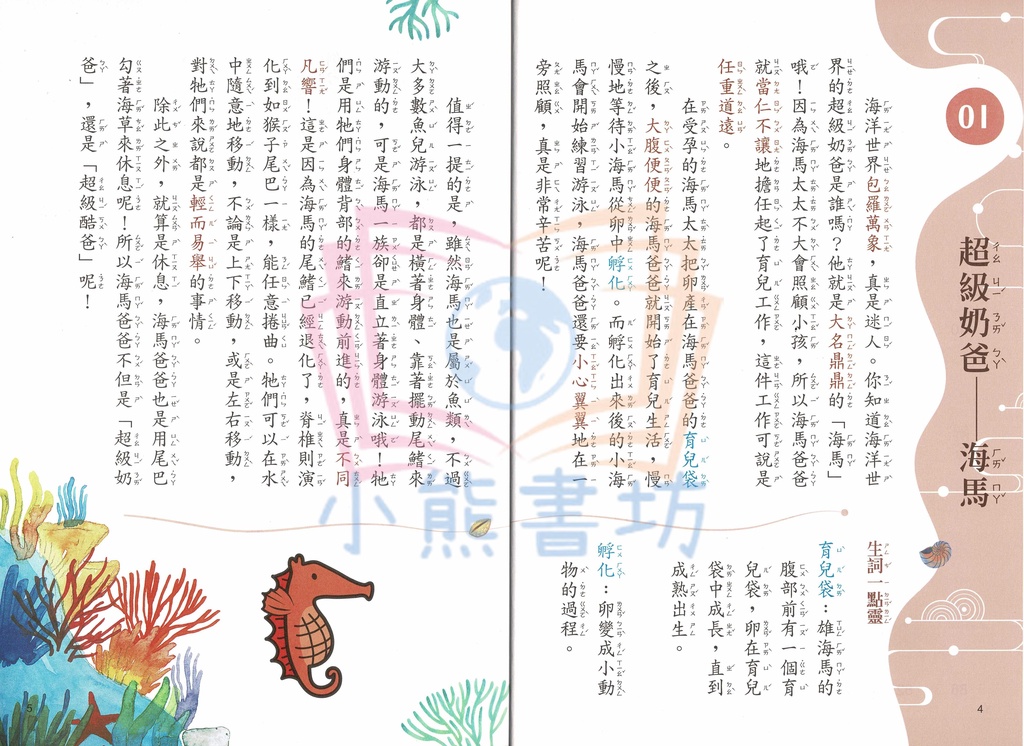 01
超級奶爸——海馬
海洋世界包羅萬象，真是迷人。你知道海洋世
界的超級奶爸是誰嗎？他就是大名鼎鼎的「海馬」
哦！因為海馬太太不大會照顧小孩，所以海馬爸爸
就當仁不讓地擔任起了育兒工作，這件工作可說是
任重道遠。
在受孕的海馬太太把卵產在海馬爸爸的育兒袋
之後，大腹便便的海馬爸爸就開始了育兒生活，慢
慢地等待小海馬從卵中孵化。而孵化出來後的小海
馬會開始練習游泳，海馬爸爸還要小心翼翼地在一
旁照顧，真是非常辛苦呢！
生詞一點靈
育兒袋：雄海馬的
腹部前有一個育
兒袋，卵在育兒
袋中成長，直到
成熟出生。
孵化：卵變成小動
物的過程。
4
值得一提的是，雖然海馬也是屬於魚類，不過
大多數魚兒游泳，都是橫著身體、靠著擺動尾鰭來
游動的，可是海馬一族卻是直立著身體游泳哦！牠
們是用牠們身體背部的鰭來游動前進的，真是不同
凡響！這是因為海馬的尾鰭已經退化了，脊椎則演
化到如猴子尾巴一樣，能任意捲曲。牠們可以在水
中隨意地移動，不論是上下移動，或是左右移動，
對牠們來說都是輕而易舉的事情。
除此之外，就算是休息，海馬爸爸也是用尾巴
勾著海草來休息呢！所以海馬爸爸不但是「超級奶
爸」，還是「超級酷爸」呢！
5
小熊書坊